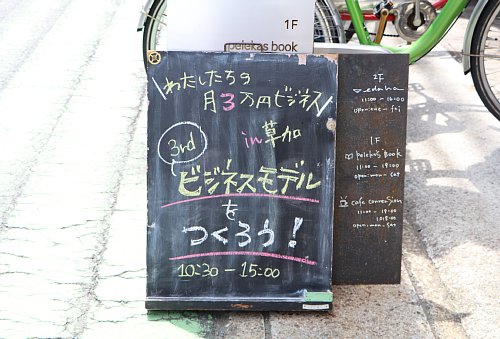 1F
pelekas book
わたしたちの
月3万円ビジネス
in草加
3rd
ビジネスモデル
を
つくろう！
10:30-15:00
2F
11:00-16:00
1F
Pelekas Book
11:00-19:00
open:mon-sat
cafe conversion
11:00-19:00
open:mon-sat